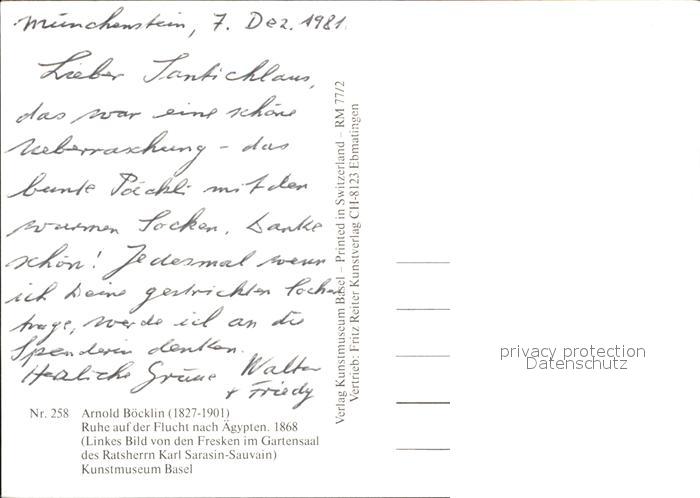 Münchenstein, 7. Dez. 1981.
Lieber Santichlaus,
das war eine schöne
Ueberraschung - das
bunte Päckli mit den
warmen Socken. Danke
schön! Jedesmal wenn
ich Deine gestrickten Socken
trage, werde ich an die
Spenderin denken.
Herzliche Grüsse Walter
+ Friedy
Nr. 258 Arnold Böcklin (1827-1901)
Ruhe auf der Flucht nach Ägypten. 1868
(Linkes Bild von den Fresken im Gartensaal
des Ratsherrn Karl Sarasin-Sauvain)
Kunstmuseum Basel
Verlag Kunstmuseum Basel – Printed in Switzerland – RM 77/2
Vertrieb: Fritz Reiter Kunstverlag CH-8123 Ebmatingen
privacy protection
Datenschutz